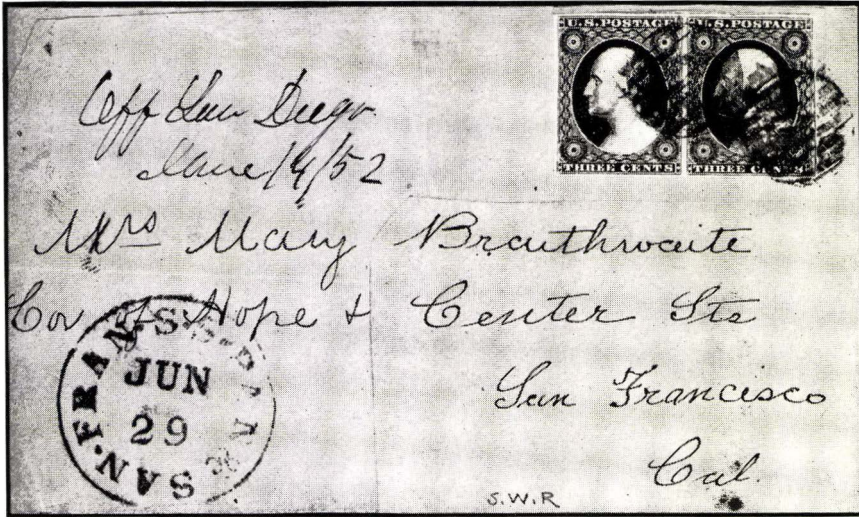 U.S. POSTAGE U.S. POSTAGE
THREE CENTS THREE CENTS
Off San Diego
June 14/52
Mrs Mary Brauthwaite
Cor of Hope & Center Sts
San Francisco
Cal.
& SAN.FRAN.S.S.
JUN
29
S.W.R